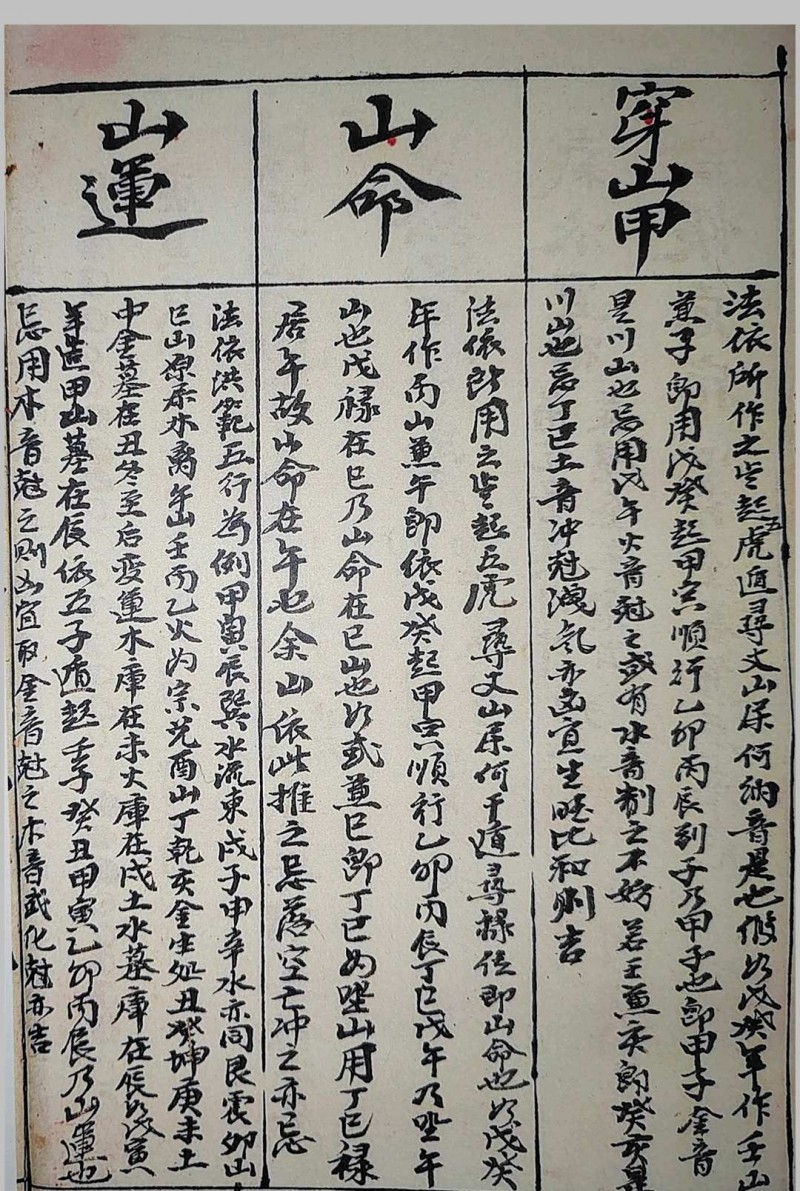 穿山甲
法依所作之岁起五虎遁尋丈山屬何納音是也假如戊癸年作壬山
兼子即用戊癸起甲寅順行乙卯丙辰到子乃甲子也即甲子金音
是川山也忌用戊午火音尅之或有水音制之不妨若壬兼亥即癸亥是
川山也忌丁巳土音冲尅洩氣亦凶宜生旺比和則吉
山命
法依所用之岁起五虎尋丈山屬何干遁尋祿位即山命也如戊癸
年作丙山兼午即依戊癸起甲寅順行乙卯丙辰丁巳戊午乃坐午
山也戊祿在巳乃山命在巳山也如或兼巳即丁巳為坐山用丁巳祿
居午故山命在午也余山依此推之忌落空亡冲之亦忌
山運
法依洪範五行為例甲寅辰巽水流東戌子申辛水亦同艮震卯山
巳山原示木離午山壬丙乙火為宗兌酉山丁乾亥金生処丑癸坤庚未土
中金墓在丑冬至后变運木庫在未火庫在戌土水墓庫在辰如戊寅
年造甲山墓在辰依五子遁起壬子癸丑甲寅乙卯丙辰乃山運也
忌用木音尅之則凶宜取金音尅之木音或化尅亦吉